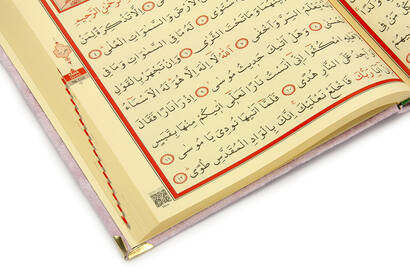 الرَّحْمٰنِ الرَّحٖيمِ
اِلَّا تَذْكِرَةً
الْاَرْضَ وَالسَّمٰوَاتِ الْعُلٰى
لَهُ مَا فِي السَّمٰوَاتِ وَمَا فِي
بَيْنَهُمَا وَمَا تَحْتَ الثَّرٰى وَاِنْ تَجْهَرْ بِالْقَوْلِ
يَعْلَمُ السِّرَّ وَاَخْفٰى اَللّٰهُ لَا اِلٰهَ اِلَّا هُوَ لَهُ الْاَسْمَاءُ
وَهَلْ اَتٰيكَ حَدٖيثُ مُوسٰى اِذْ رَاٰ نَارًا فَقَالَ
امْكُثُوا اِنّٖى اٰنَسْتُ نَارًا لَعَلّٖى اٰتٖيكُمْ مِنْهَا بِقَبَسٍ
عَلَى النَّارِ هُدًى فَلَمَّا اَتٰيهَا نُودِيَ يَا مُوسٰى
اَنَا رَبُّكَ فَاخْلَعْ نَعْلَيْكَ اِنَّكَ بِالْوَادِ الْمُقَدَّسِ طُوًى